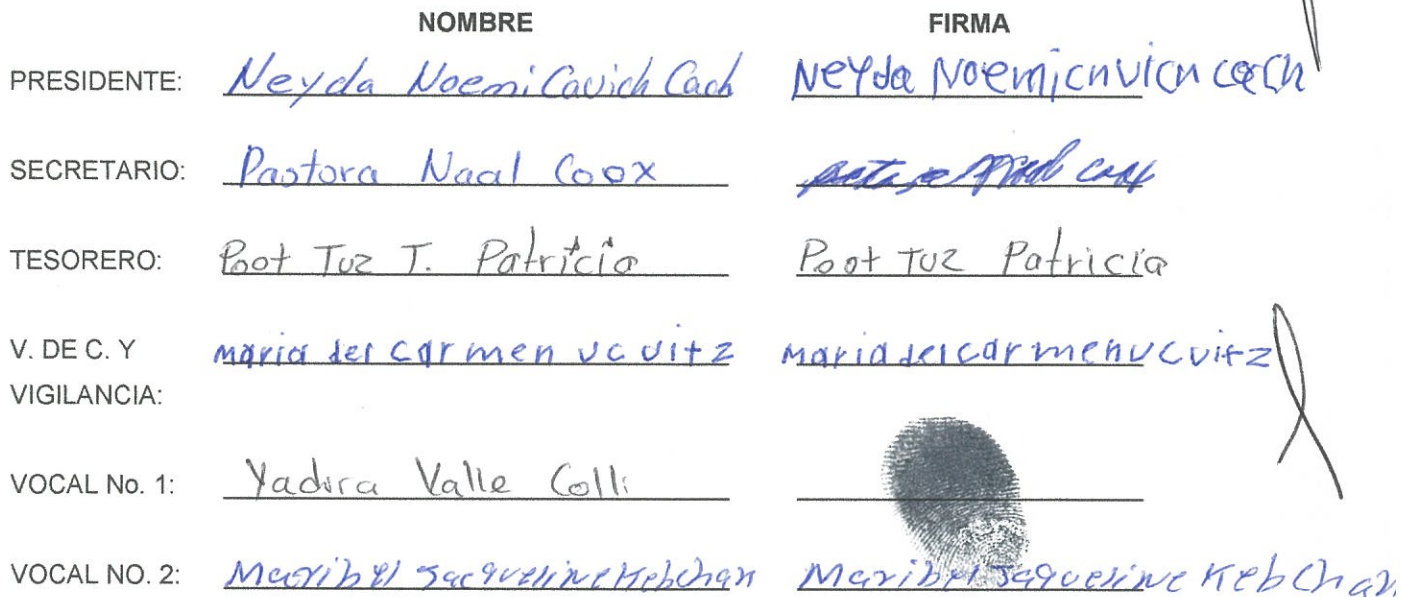 NOMBRE FIRMA
PRESIDENTE: Neyda Noemi Cavich Cach Neyda Noemi cavich cach
SECRETARIO: Pastora Naal Coox
TESORERO: Poot Tuz T. Patricia Poot Tuz Patricia
V. DE C. Y maria del carmen uc uitz maria del carmen uc uitz
VIGILANCIA:
VOCAL No. 1: Yadira Valle Colli
VOCAL NO. 2: Maribel Jacqueline Keb Chan Maribel Jaqueline Keb Chan